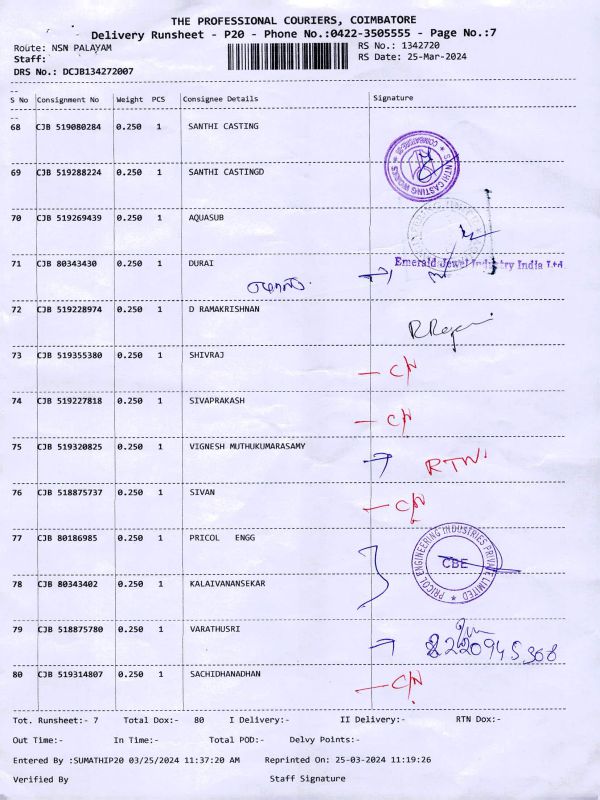 THE PROFESSIONAL COURIERS, COIMBATORE
Delivery Runsheet - P20 - Phone No.:0422-3505555 - Page No.:7
Route: NSN PALAYAM RS No.: 1342720
Staff: RS Date: 25-Mar-2024
DRS No.: DCJB134272007
S No Consignment No Weight PCS Consignee Details Signature
68 CJB 519080284 0.250 1 SANTHI CASTING
SANTHI CASTING WORKS
69 CJB 519288224 0.250 1 SANTHI CASTINGD
70 CJB 519269439 0.250 1 AQUASUB
71 CJB 80343430 0.250 1 DURAI
Emerald Jewel Industry India Ltd
72 CJB 519228974 0.250 1 D RAMAKRISHNAN
73 CJB 519355380 0.250 1 SHIVRAJ
C/N
74 CJB 519227818 0.250 1 SIVAPRAKASH
C/N
75 CJB 519320825 0.250 1 VIGNESH MUTHUKUMARASAMY
RTN
76 CJB 518875737 0.250 1 SIVAN
C/N
77 CJB 80186985 0.250 1 PRICOL ENGG
PRICOL ENGINEERING INDUSTRIES PRIVATE LIMITED
CBE
78 CJB 80343402 0.250 1 KALAIVANANSEKAR
79 CJB 518875780 0.250 1 VARATHUSRI
8220945368
80 CJB 519314807 0.250 1 SACHIDHANADHAN
C/N
Tot. Runsheet:- 7 Total Dox:- 80 I Delivery:- II Delivery:- RTN Dox:-
Out Time:- In Time:- Total POD:- Delvy Points:-
Entered By :SUMATHIP20 03/25/2024 11:37:20 AM Reprinted On: 25-03-2024 11:19:26
Verified By Staff Signature